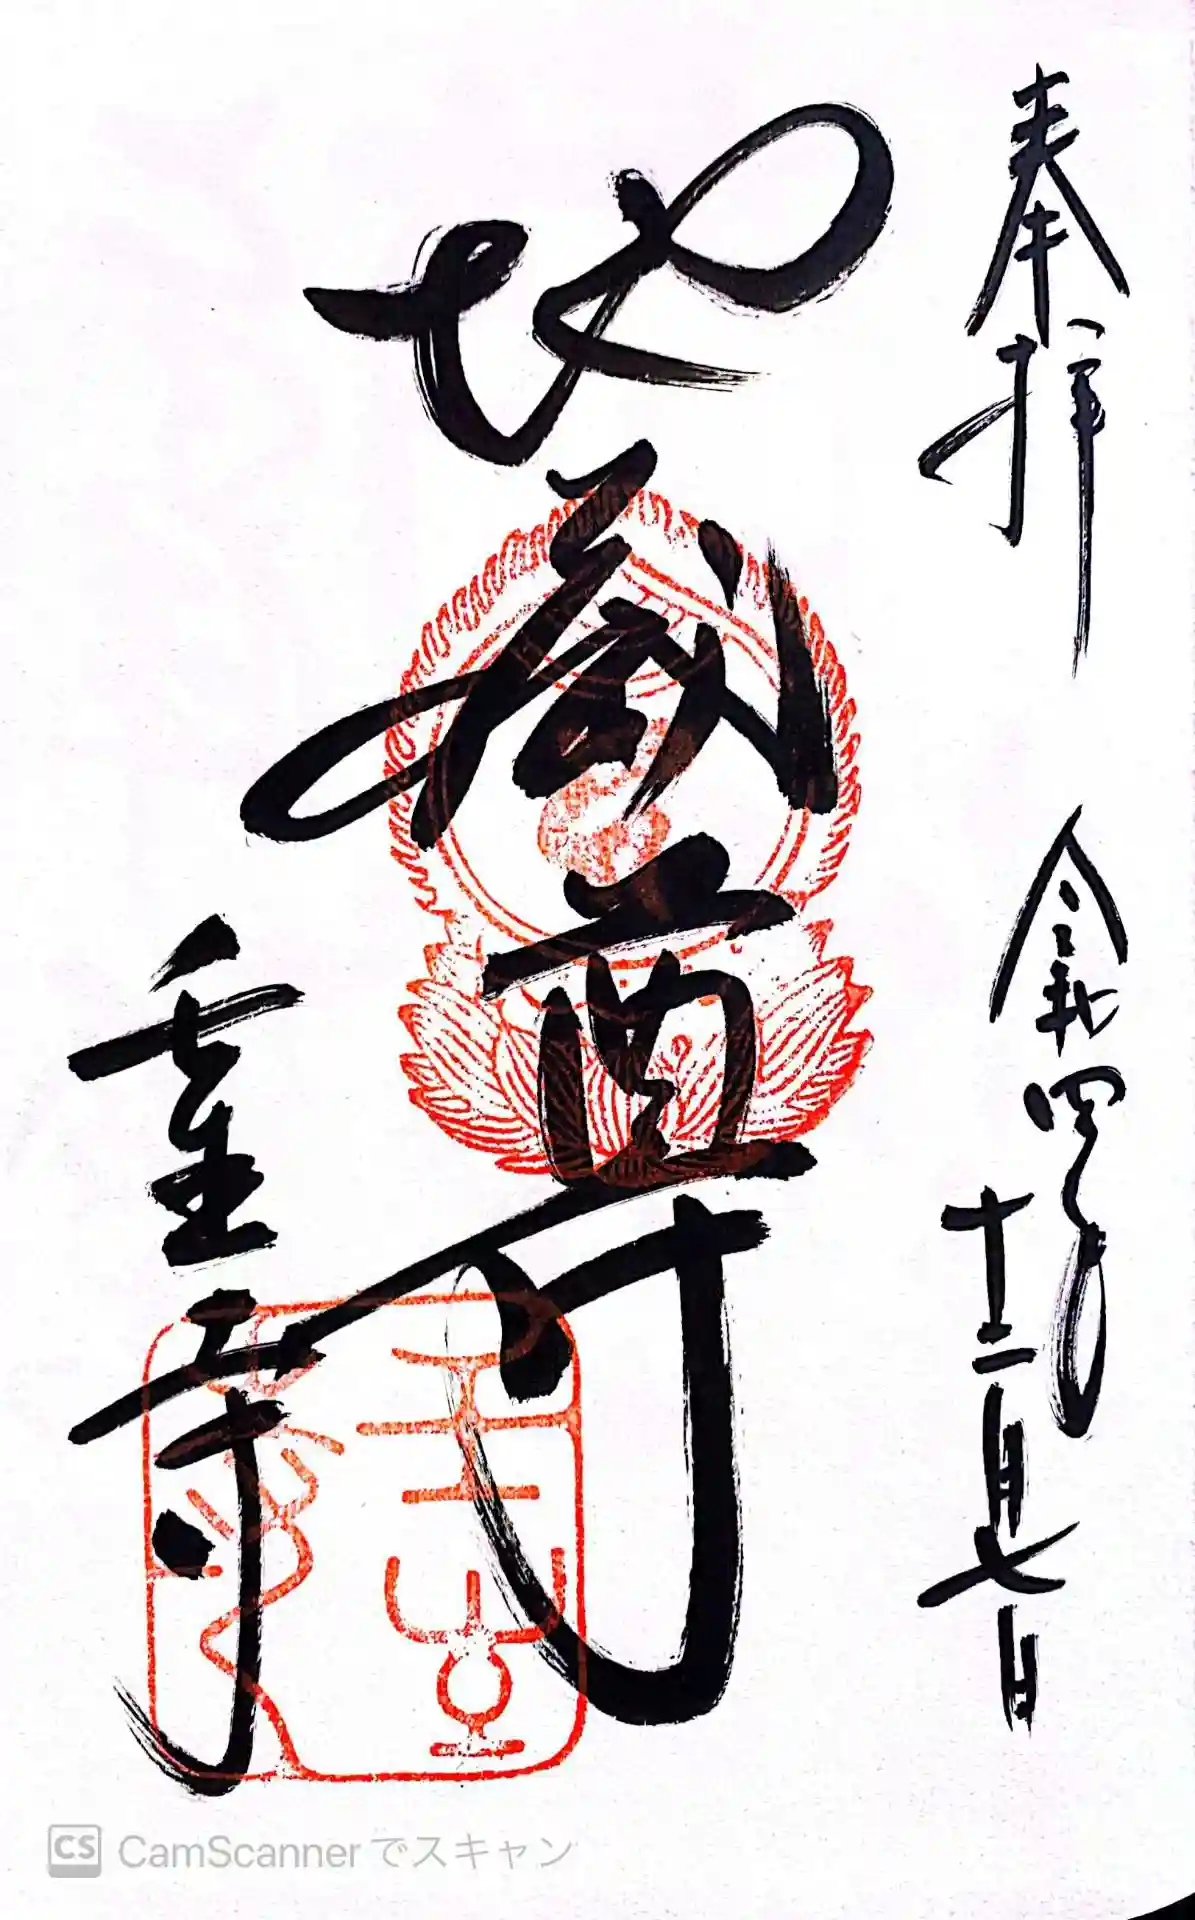 奉拝
令和四年
十二月七日
地蔵尊
重寺
CS CamScannerでスキャン